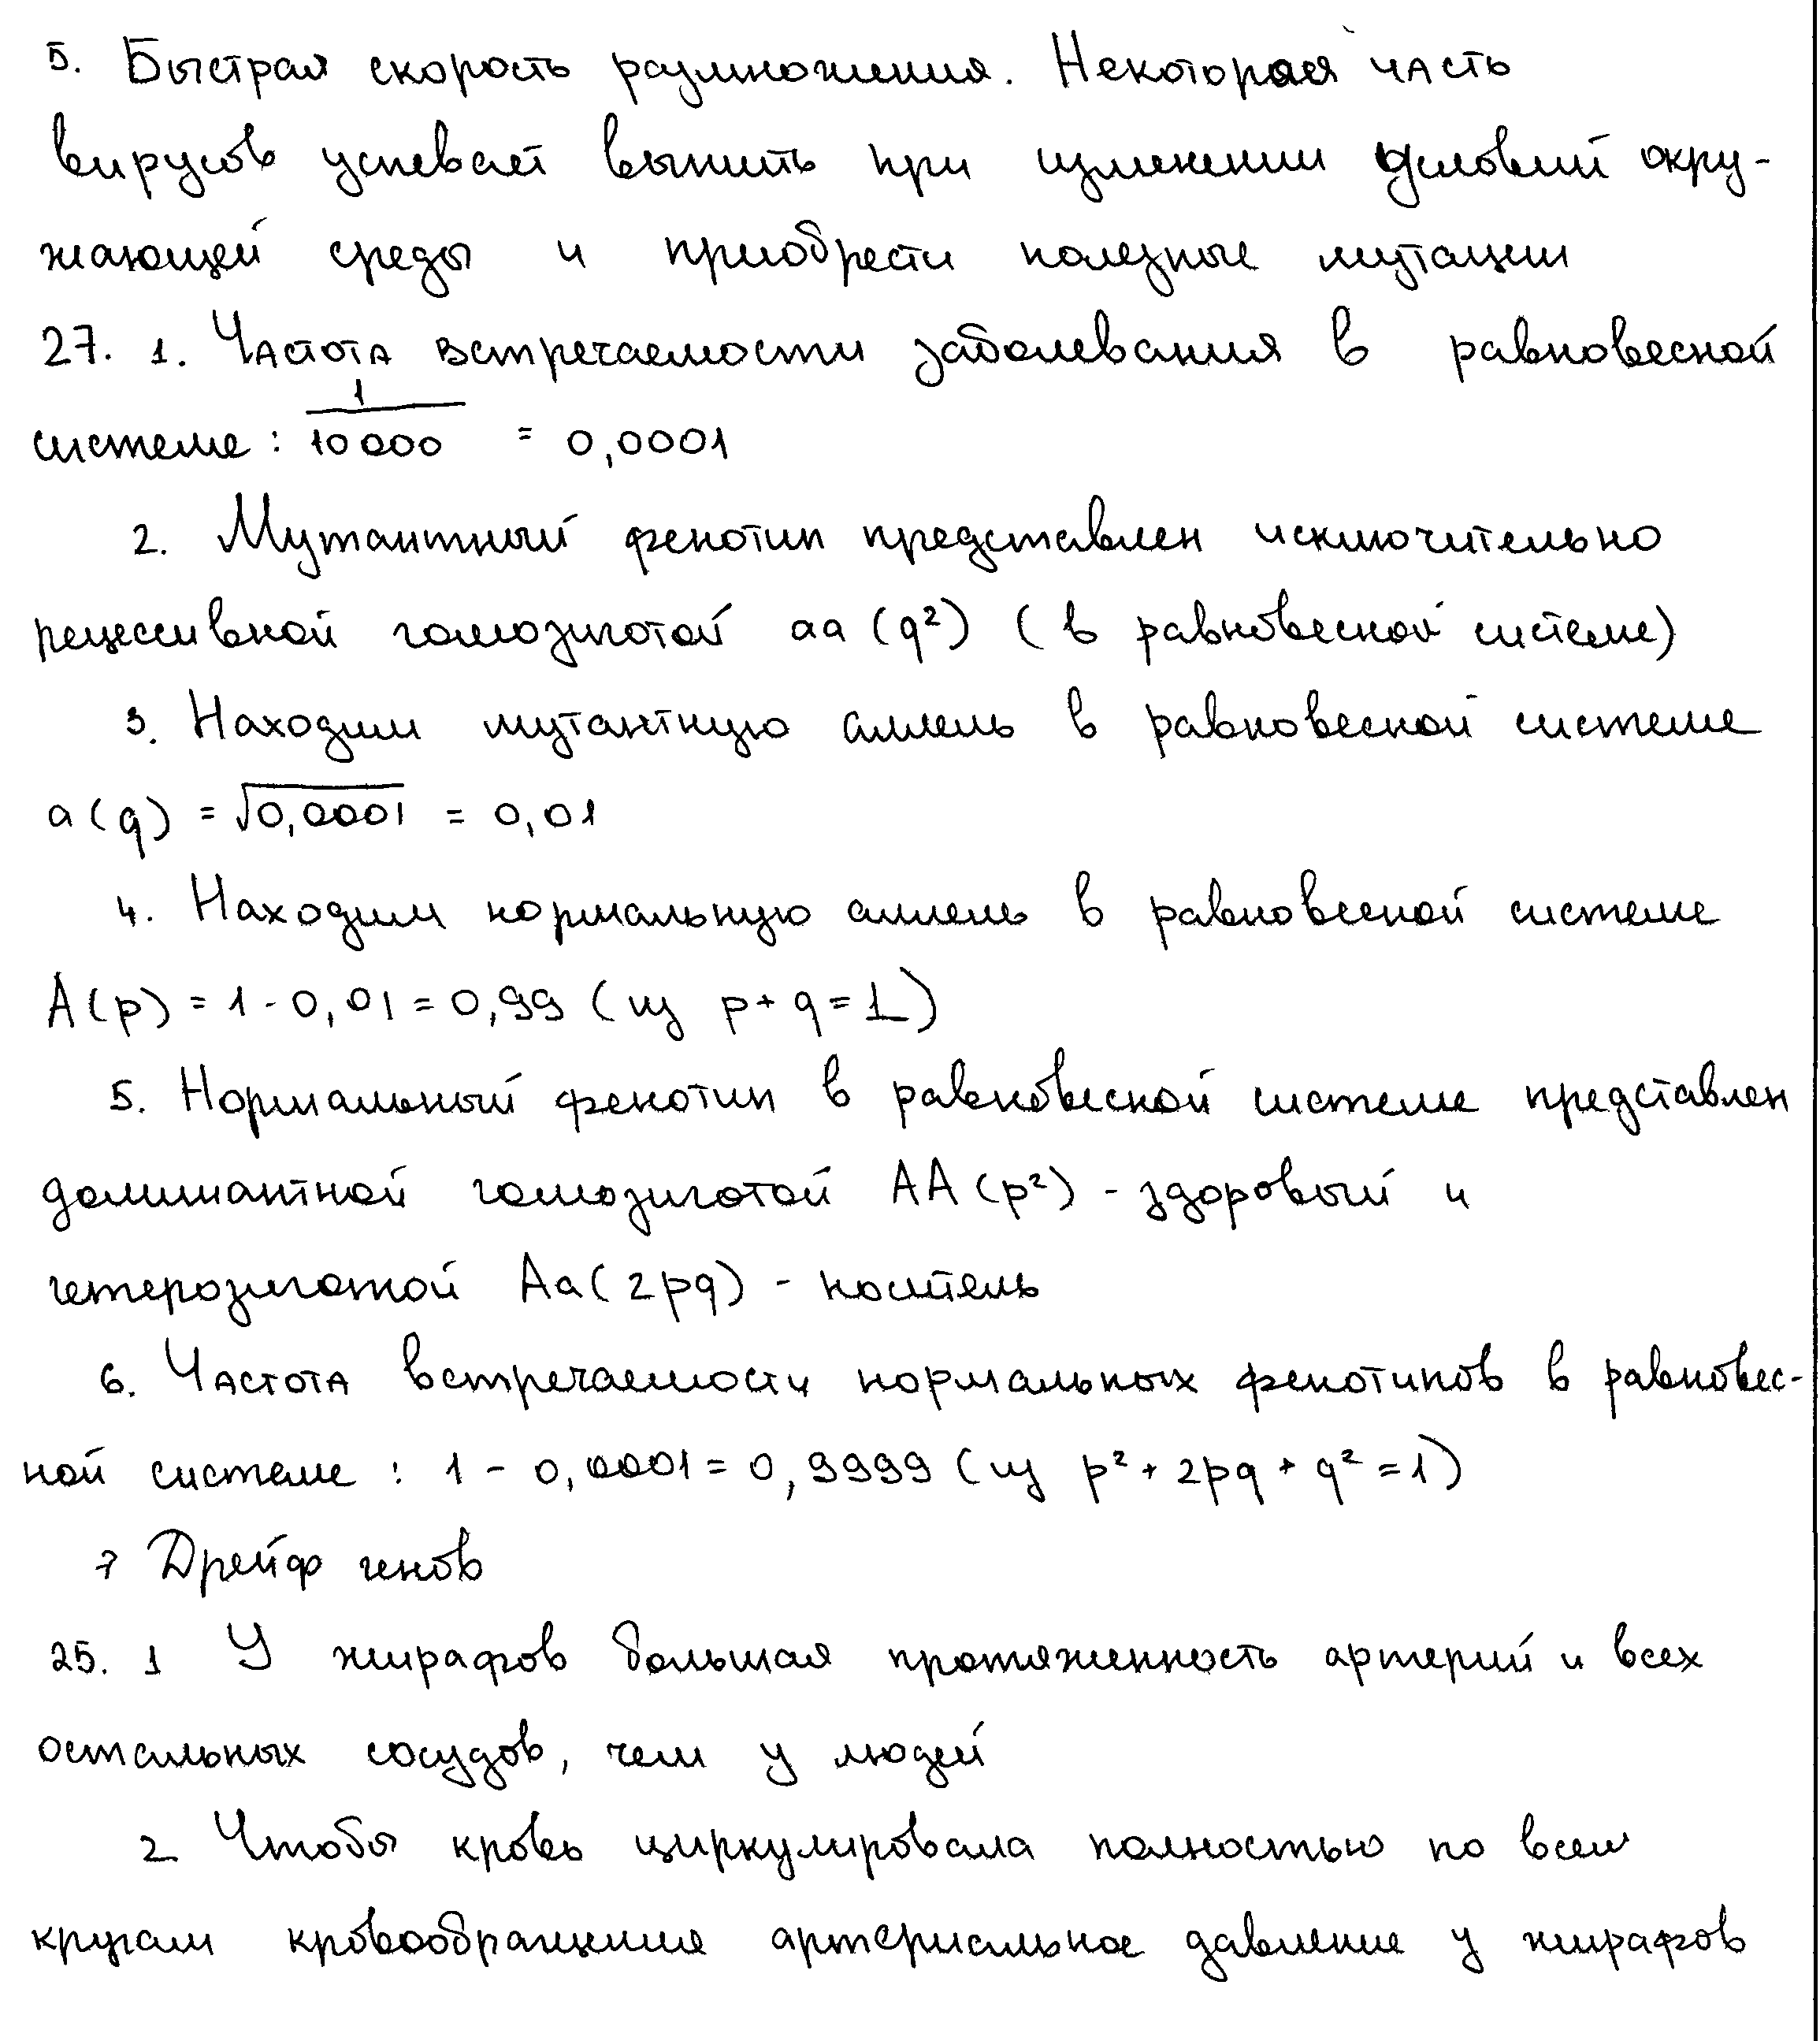 5. Быстрая скорость размножения. Некоторая часть
вирусов успевает выжить при изменении условий окру-
жающей среды и приобрести полезные мутации
27. 1. Частота встречаемости заболевания в равновесной
системе: 1/10000 = 0,0001
2. Мутантный фенотип представлен исключительно
рецессивной гомозиготой aa (q²) (в равновесной системе)
3. Находим мутантную аллель в равновесной системе
a(q) = √0,0001 = 0,01
4. Находим нормальную аллель в равновесной системе
A(p) = 1 - 0,01 = 0,99 (из p + q = 1)
5. Нормальный фенотип в равновесной системе представлен
доминантной гомозиготой AA (p²) - здоровый и
гетерозиготой Aa (2pq) - носитель
6. Частота встречаемости нормальных фенотипов в равновес-
ной системе: 1 - 0,0001 = 0,9999 (из p² + 2pq + q² = 1)
7 Дрейф генов
25. 1 У жирафов большая протяженность артерий и всех
остальных сосудов, чем у людей
2 Чтобы кровь циркулировала полностью по всем
кругам кровообращения артериальное давление у жирафов